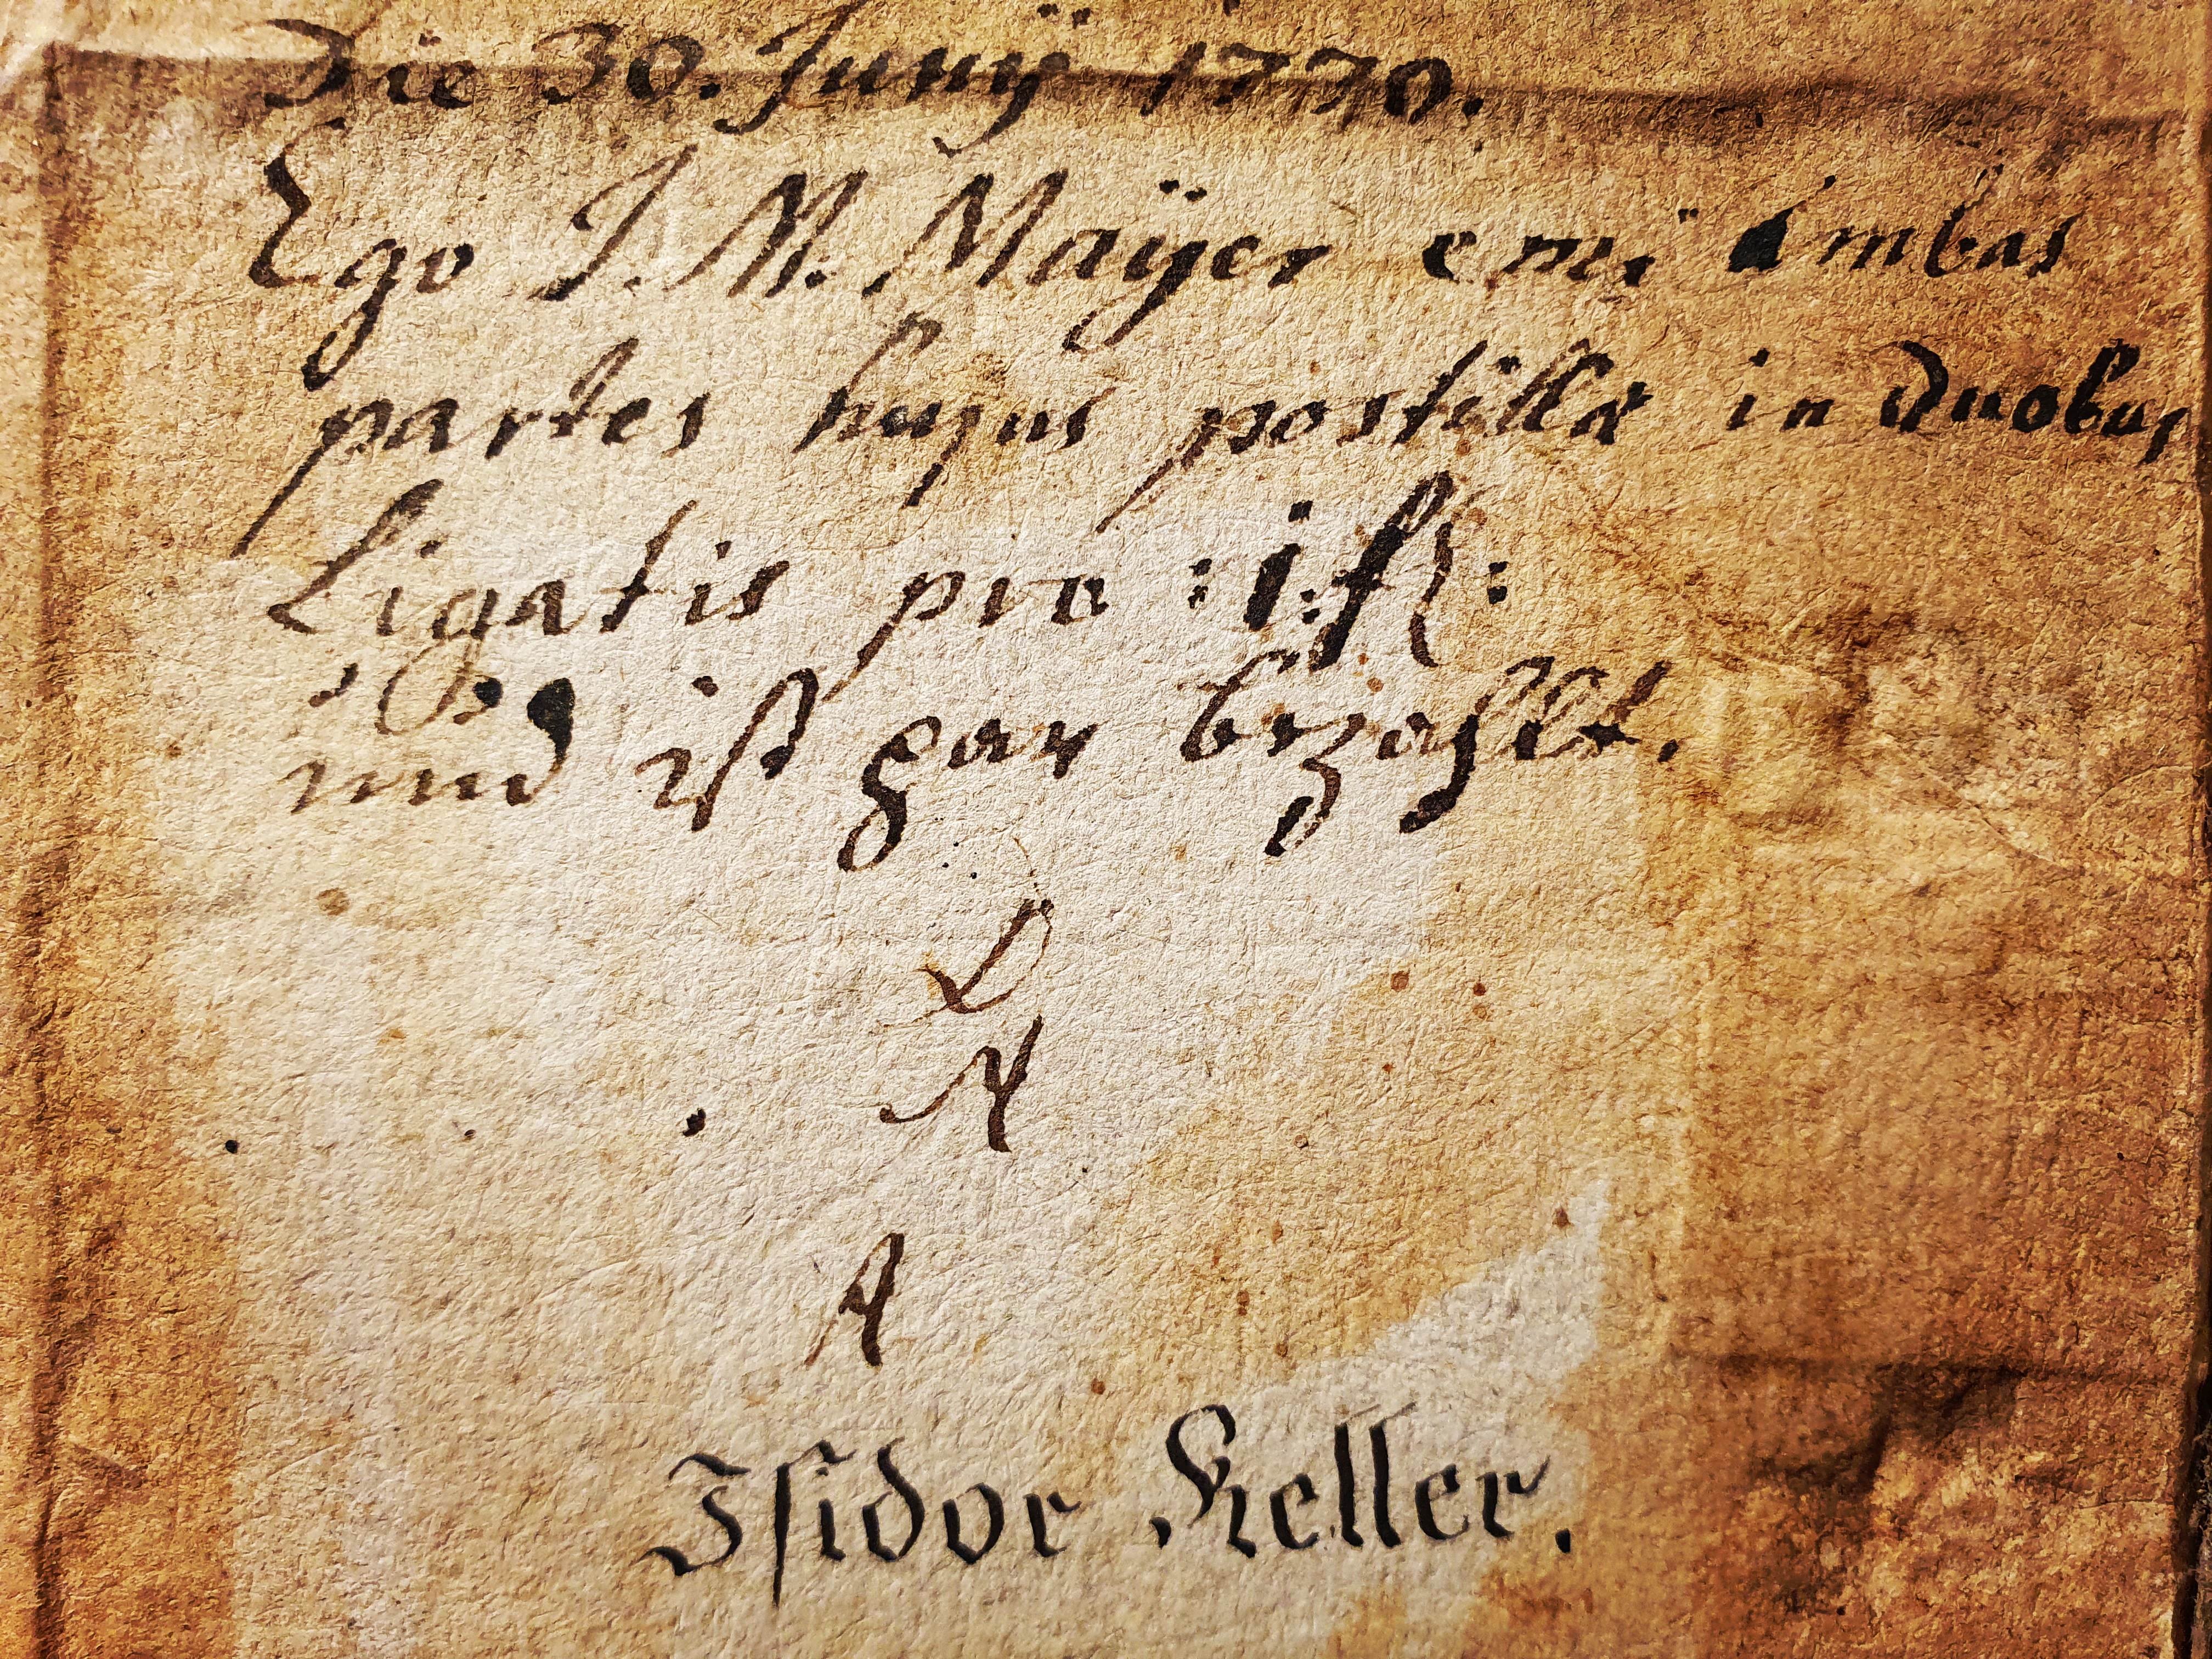 Die 30. Junÿ 1770.
Ego J. M. Maÿer emi ambas
partes hujus postillæ in duobus
Ligatis pro :1: fl:
und ist gar bezahlt.
L
N
A
Isidor Keller.